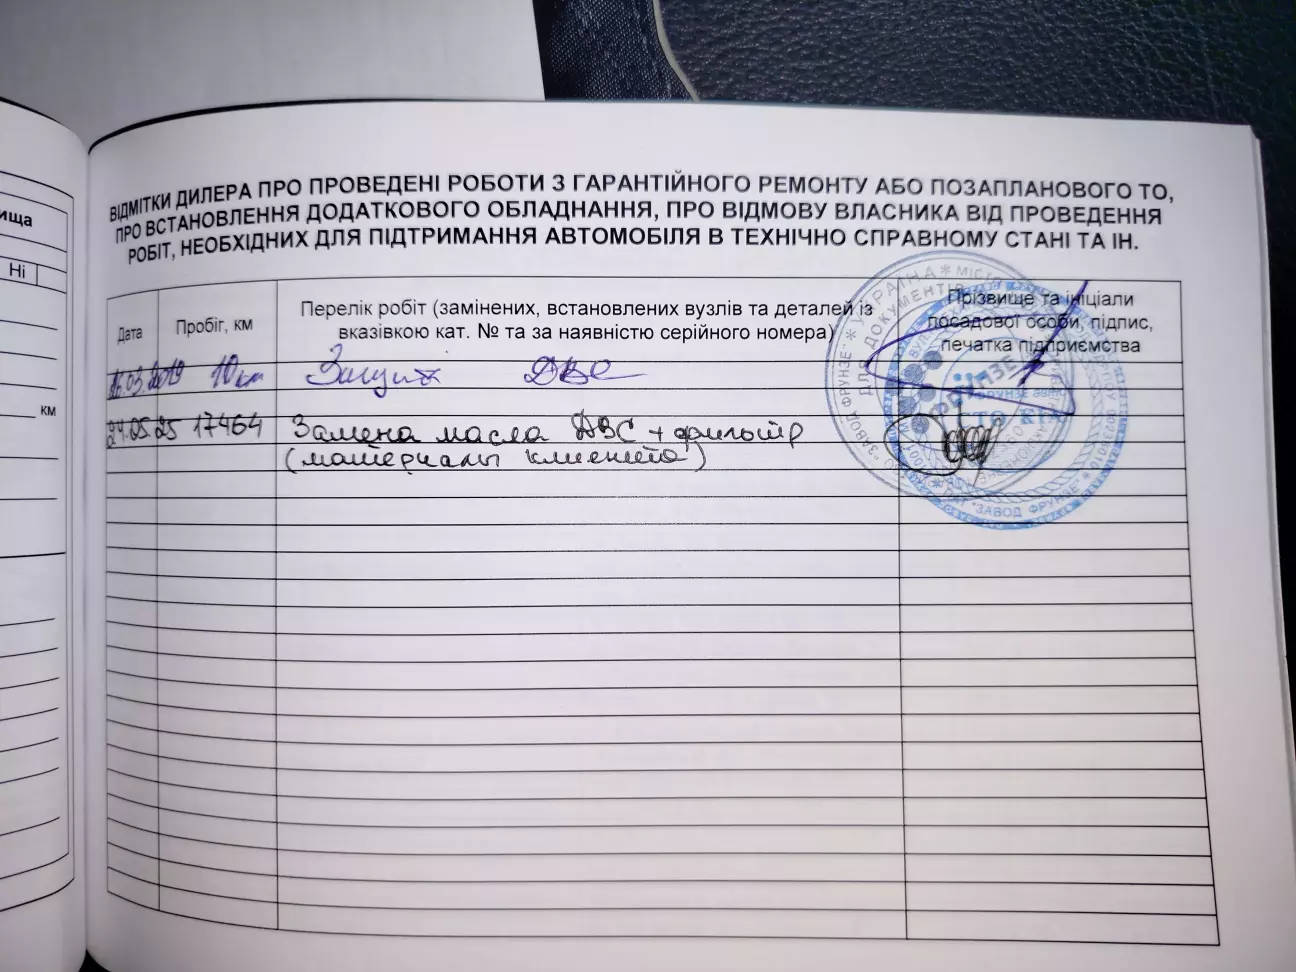 ища
Ні
км
ВІДМІТКИ ДИЛЕРА ПРО ПРОВЕДЕНІ РОБОТИ З ГАРАНТІЙНОГО РЕМОНТУ АБО ПОЗАПЛАНОВОГО ТО,
ПРО ВСТАНОВЛЕННЯ ДОДАТКОВОГО ОБЛАДНАННЯ, ПРО ВІДМОВУ ВЛАСНИКА ВІД ПРОВЕДЕННЯ
РОБІТ, НЕОБХІДНИХ ДЛЯ ПІДТРИМАННЯ АВТОМОБІЛЯ В ТЕХНІЧНО СПРАВНОМУ СТАНІ ТА ІН.
Дата
Пробіг, км
Перелік робіт (замінених, встановлених вузлів та деталей із
вказівкою кат. № та за наявністю серійного номера)
Прізвище та ініціали
посадової особи, підпис,
печатка підприємства
03.2019 10км ДВС
24.05.25 17464 Замена масла ДВС + фильтр
(материалы клиента)
УКРАЇНА * МІСТО
ДЛЯ ДОКУМЕНТІВ
"ЗАВОД ФРУНЗЕ"